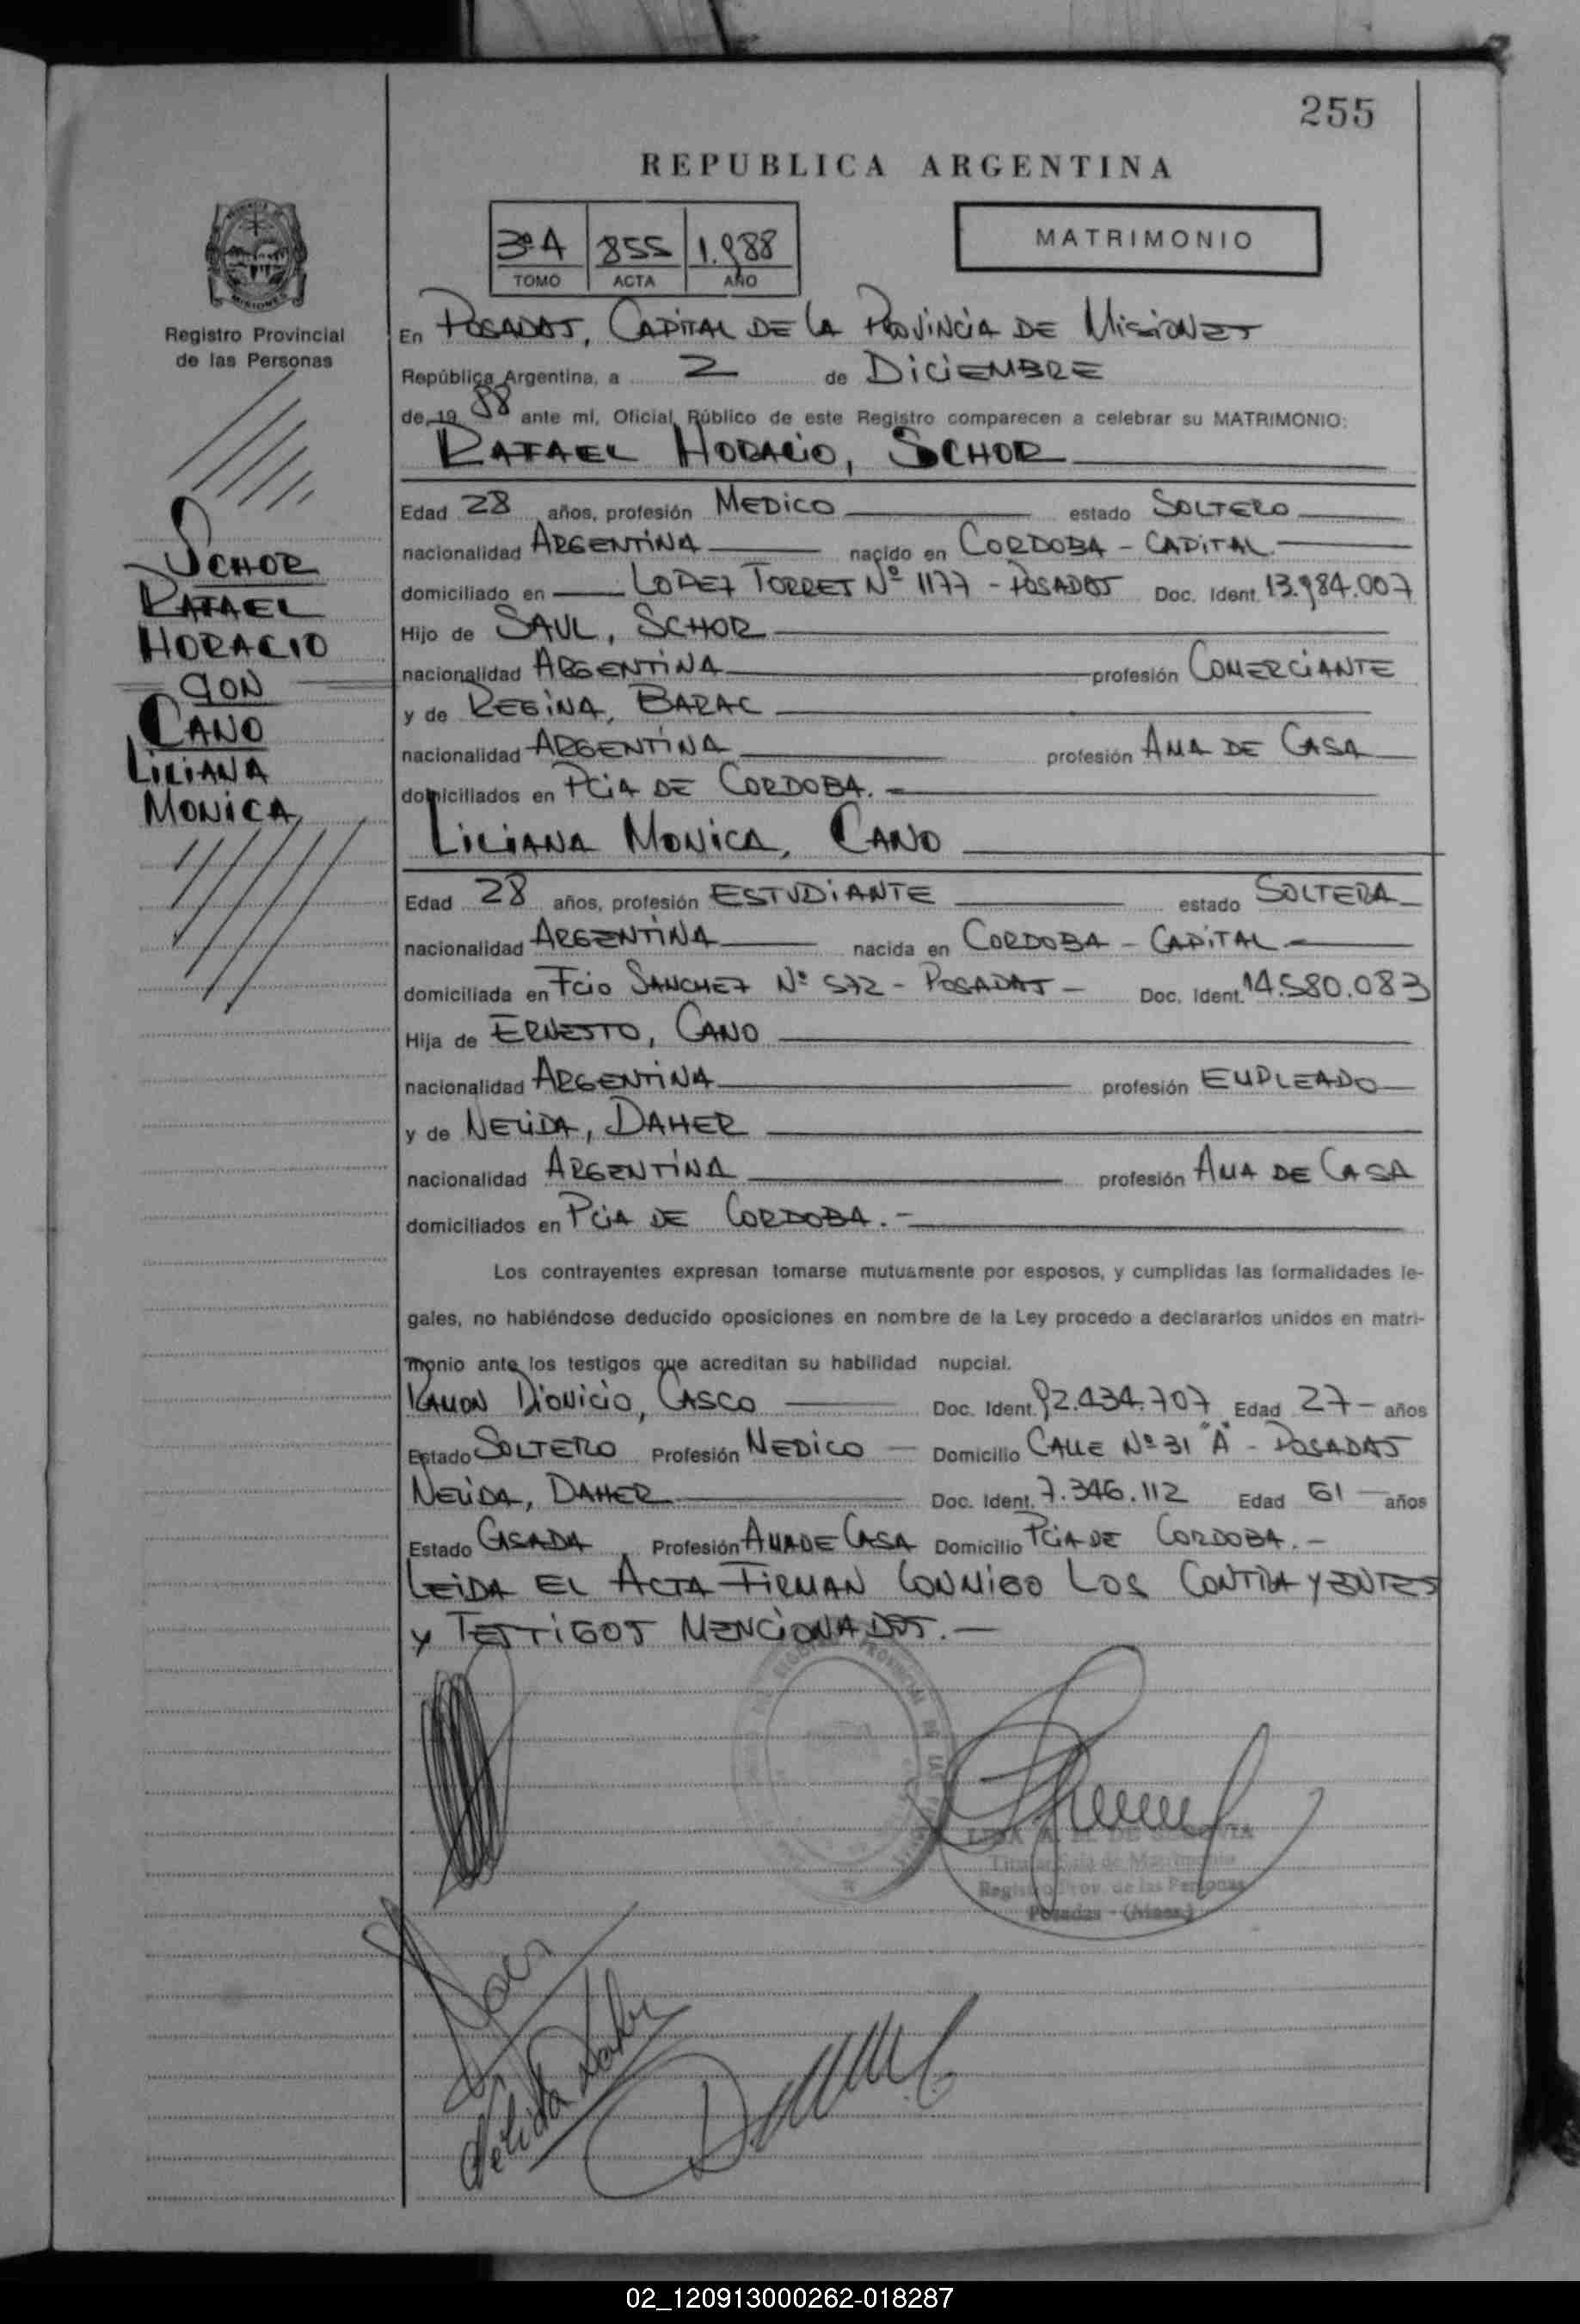 255
REPUBLICA ARGENTINA
3º A 855 1.988
TOMO ACTA AÑO
MATRIMONIO
Registro Provincial
de las Personas
SCHOR
RAFAEL
HORACIO
CON
CANO
LILIANA
MONICA
En POSADAS, CAPITAL DE LA PROVINCIA DE MISIONES
República Argentina, a 2 de DICIEMBRE
de 19 88 ante mí, Oficial Público de este Registro comparecen a celebrar su MATRIMONIO:
RAFAEL HORACIO, SCHOR
Edad 28 años, profesión MEDICO estado SOLTERO
nacionalidad ARGENTINA nacido en CORDOBA - CAPITAL.
domiciliado en LOPEZ TORRES Nº 1177 - POSADAS Doc. Ident. 13.984.007
Hijo de SAUL, SCHOR
nacionalidad ARGENTINA profesión COMERCIANTE
y de REGINA, BARAC
nacionalidad ARGENTINA profesión AMA DE CASA
domiciliados en PCIA DE CORDOBA. -
LILIANA MONICA, CANO
Edad 28 años, profesión ESTUDIANTE estado SOLTERA
nacionalidad ARGENTINA nacida en CORDOBA - CAPITAL -
domiciliada en FCIO SANCHEZ Nº 572 - POSADAS - Doc. Ident. 14.580.083
Hija de ERNESTO, CANO
nacionalidad ARGENTINA profesión EMPLEADO
y de NELIDA, DAHER
nacionalidad ARGENTINA profesión AMA DE CASA
domiciliados en PCIA DE CORDOBA. -
Los contrayentes expresan tomarse mutuamente por esposos, y cumplidas las formalidades le-
gales, no habiéndose deducido oposiciones en nombre de la Ley procedo a declararlos unidos en matri-
monio ante los testigos que acreditan su habilidad nupcial.
RAMON DIONICIO, CASCO Doc. Ident. 92.434.707 Edad 27 - años
Estado SOLTERO Profesión MEDICO - Domicilio CALLE Nº 31 "A" - POSADAS
NELIDA, DAHER Doc. Ident. 7.346.112 Edad 61 - años
Estado CASADA Profesión AMA DE CASA Domicilio PCIA DE CORDOBA. -
LEIDA EL ACTA FIRMAN CONMIGO LOS CONTRAYENTES
Y TESTIGOS MENCIONADOS. -
DE SEGOVIA
Titular Sala de Matrimonio
Registro Prov. de las Personas
Posadas - (Mnes.)
Nélida Daher
02_120913000262-018287